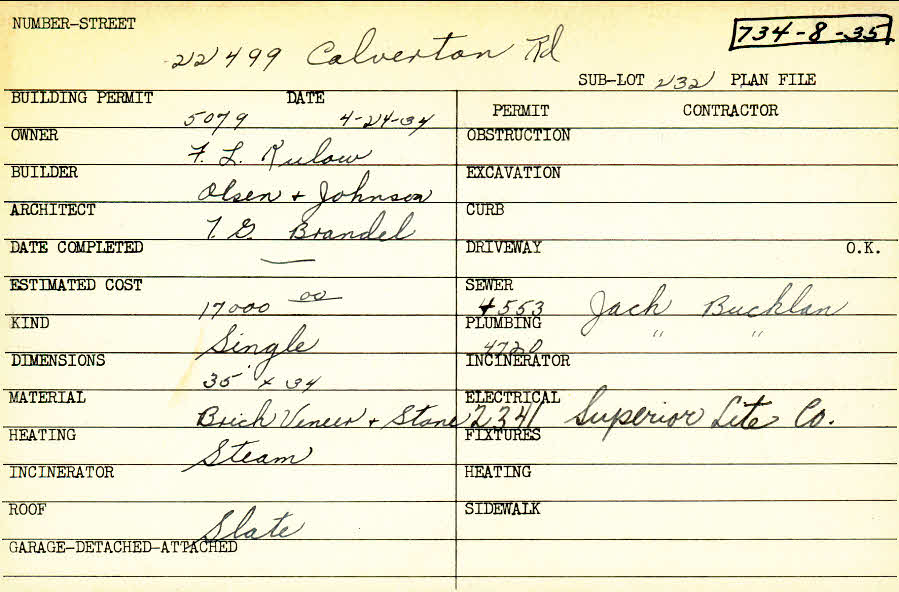 NUMBER-STREET
22499 Calverton Rd
734-8-35
SUB-LOT 232 PLAN FILE
BUILDING PERMIT 5079 DATE 4-24-34
PERMIT CONTRACTOR
OWNER F. L. Kulow
OBSTRUCTION
BUILDER Olsen + Johnson
EXCAVATION
ARCHITECT T. G. Brandel
CURB
DATE COMPLETED —
DRIVEWAY O.K.
ESTIMATED COST 17000 00
SEWER 4553 Jack Bucklan
KIND Single
PLUMBING 4720 " "
DIMENSIONS 35' x 34
INCINERATOR
MATERIAL Brick Veneer + Stone
ELECTRICAL 2341 Superior Lite Co.
HEATING Steam
FIXTURES
INCINERATOR
HEATING
ROOF Slate
SIDEWALK
GARAGE-DETACHED-ATTACHED